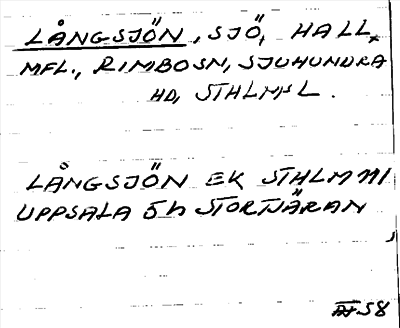 LÅNGSJÖN, SJÖ, HALL,
MFL., RIMBOSN, SJUHUNDRA
HD, STHLMS L.
LÅNGSJÖN EK STHLM III
UPPSALA 5h STORTJÄRAN
58